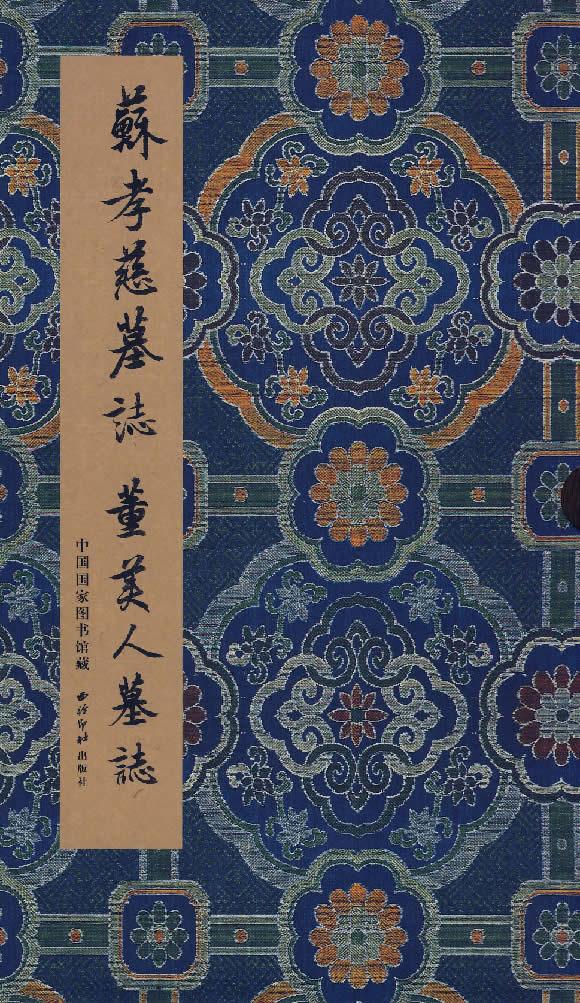 蘇孝慈墓誌 董美人墓誌
中国国家图书馆藏
西泠印社出版社